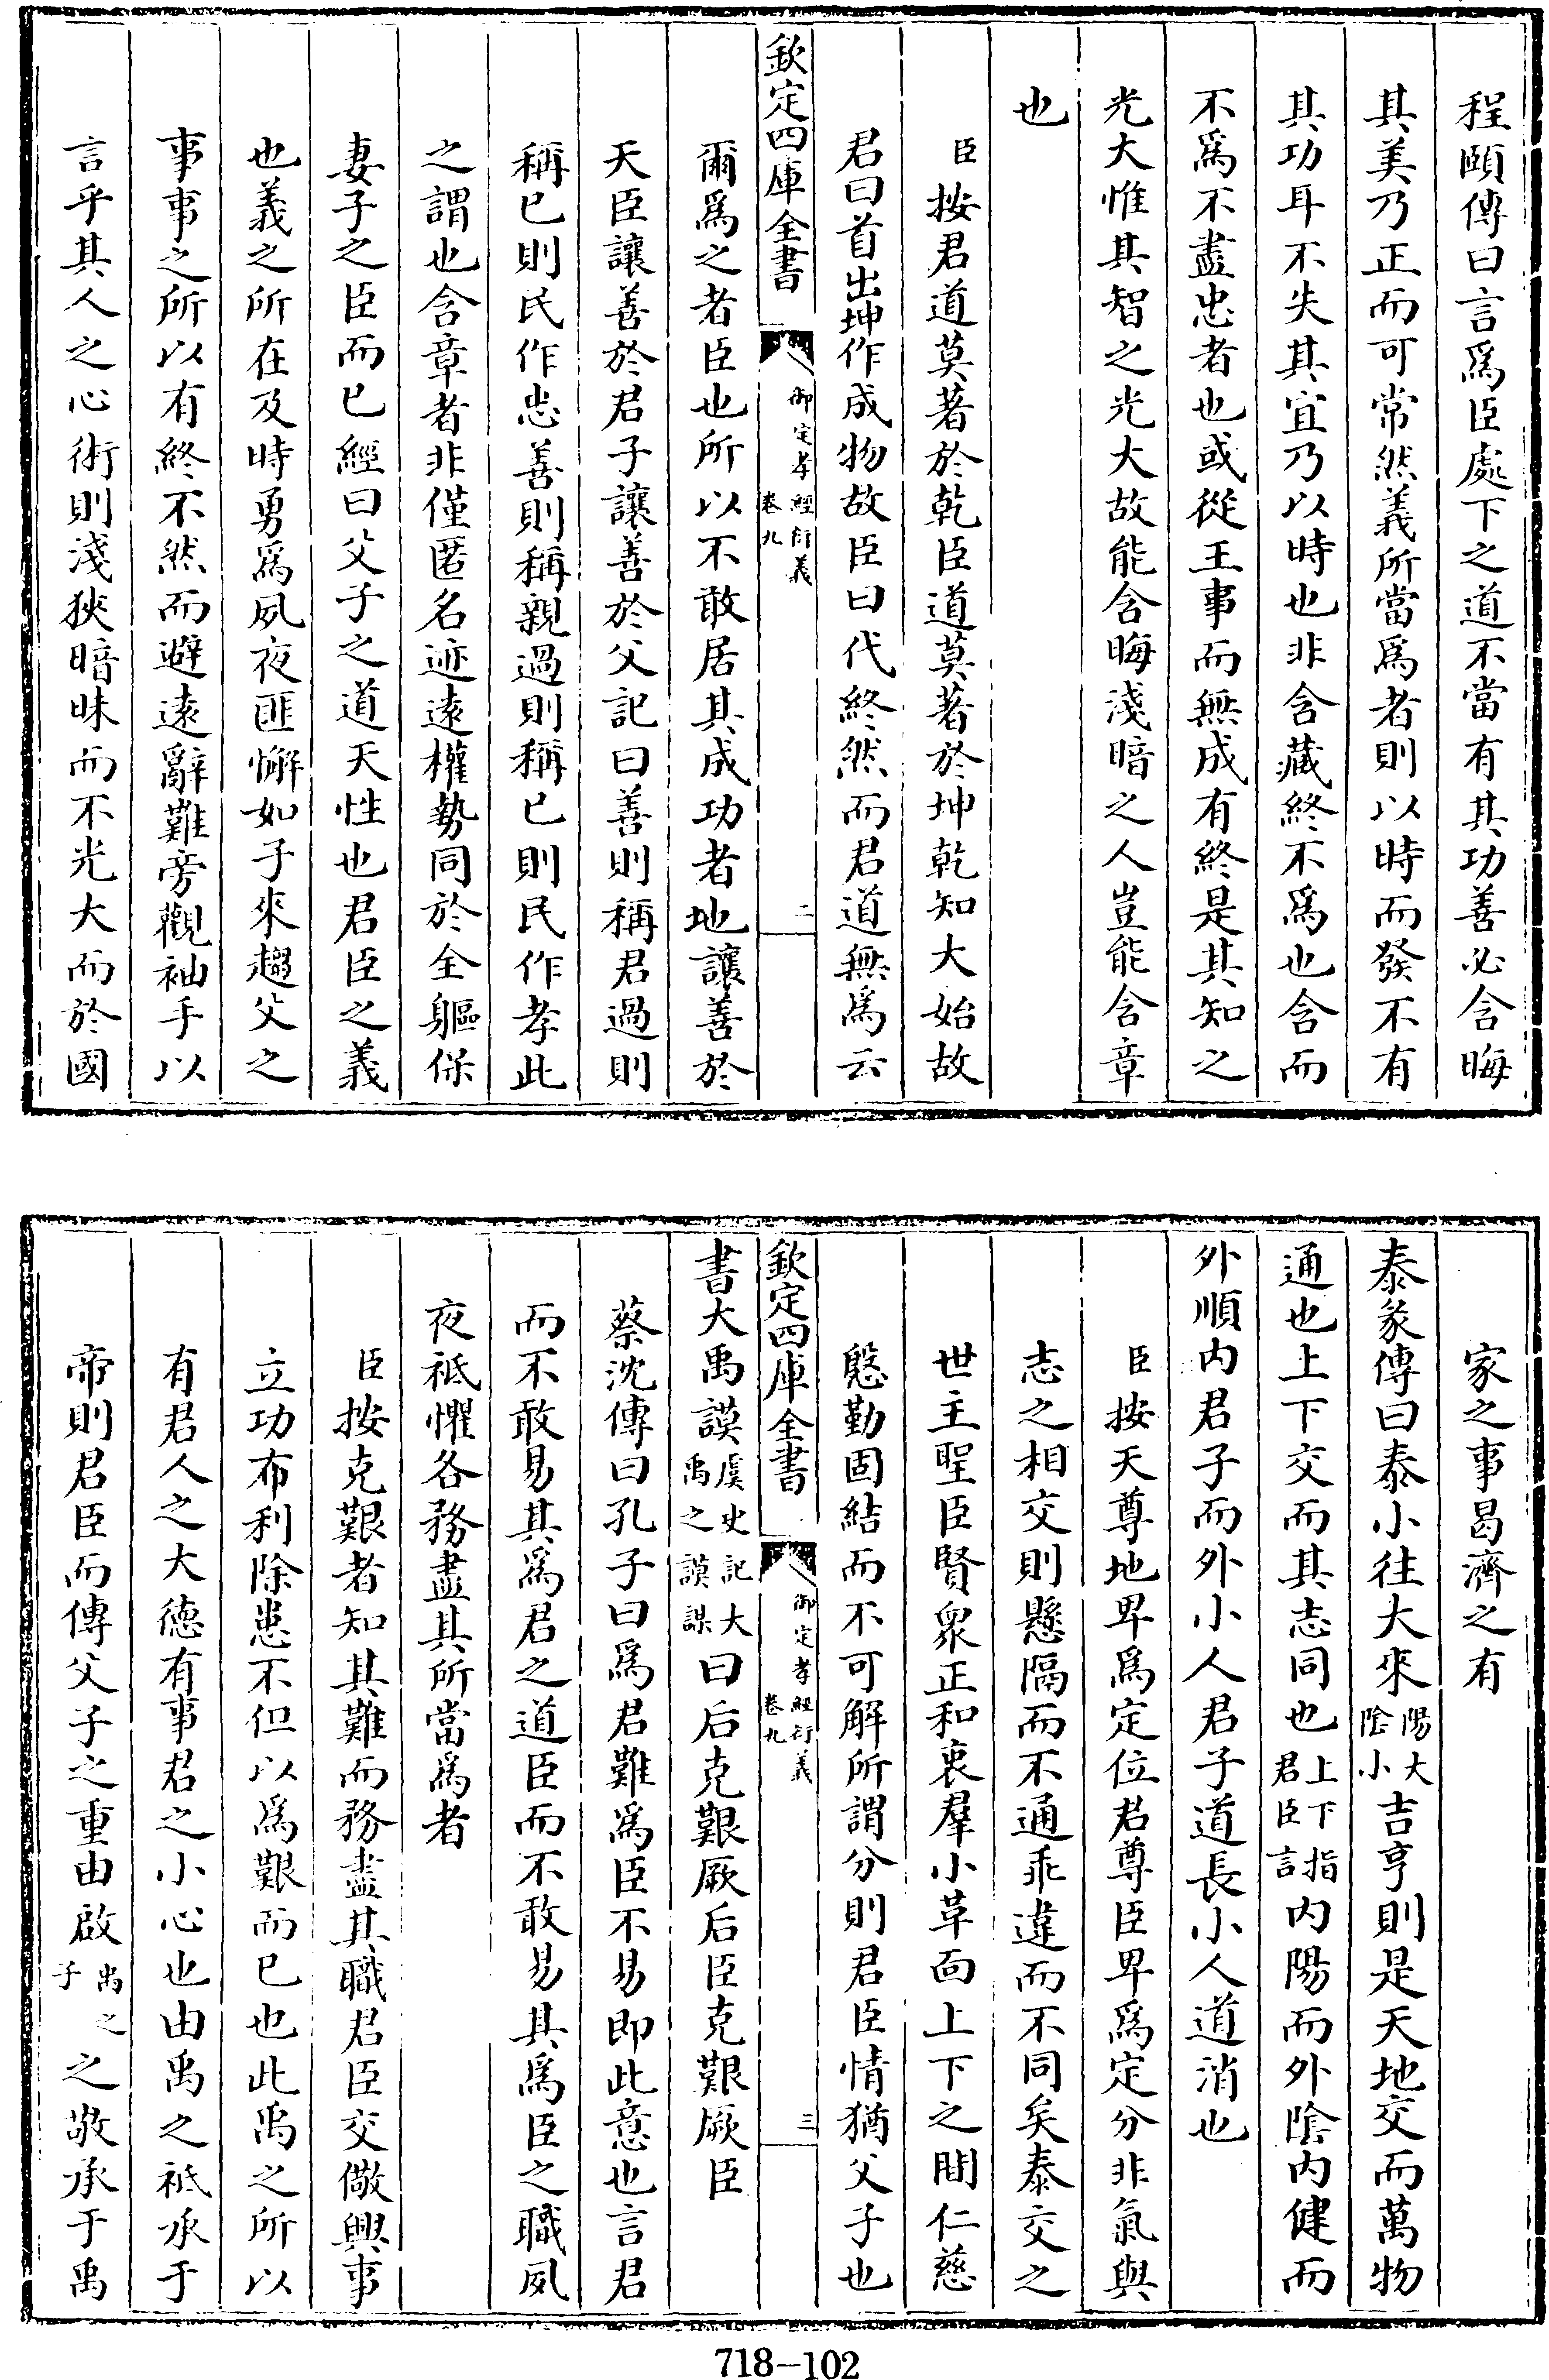 程頤傳曰言爲臣處下之道不當有其功善必含晦
其美乃正而可常然義所當爲者則以時而發不有
其功耳不失其宜乃以時也非含藏終不爲也含而
不爲不盡忠者也或從王事而無成有終是其知之
光大惟其智之光大故能含晦淺暗之人豈能含章
也
臣按君道莫著於乾臣道莫著於坤乾知大始故
君曰首出坤作成物故臣曰代終然而君道無爲云
欽定四庫全書
御定孝經衍義
卷九
二
爾爲之者臣也所以不敢居其成功者地讓善於
天臣讓善於君子讓善於父記曰善則稱君過則
稱已則民作忠善則稱親過則稱已則民作孝此
之謂也含章者非僅匿名迹遠權勢同於全軀保
妻子之臣而已經曰父子之道天性也君臣之義
也義之所在及時勇爲夙夜匪懈如子來趨父之
事事之所以有終不然而避遠辭難旁觀袖手以
言乎其人之心術則淺狹暗昧而不光大而於國
家之事曷濟之有
泰彖傳曰泰小往大來陽大陰小吉亨則是天地交而萬物
通也上下交而其志同也上下指君臣言內陽而外陰內健而
外順內君子而外小人君子道長小人道消也
臣按天尊地卑爲定位君尊臣卑爲定分非氣與
志之相交則懸隔而不通乖違而不同矣泰交之
世主聖臣賢衆正和衷羣小革面上下之間仁慈
慇勤固結而不可解所謂分則君臣情猶父子也
欽定四庫全書
御定孝經衍義
卷九
三
書大禹謨虞史記大禹之謨謀曰后克艱厥后臣克艱厥臣
蔡沈傳曰孔子曰爲君難爲臣不易即此意也言君
而不敢易其爲君之道臣而不敢易其爲臣之職夙
夜祗懼各務盡其所當爲者
臣按克艱者知其難而務盡其職君臣交儆興事
立功布利除患不但以爲艱而已也此禹之所以
有君人之大德有事君之小心也由禹之祗承于
帝則君臣而傳父子之重由啟禹之子之敬承于禹
718-102